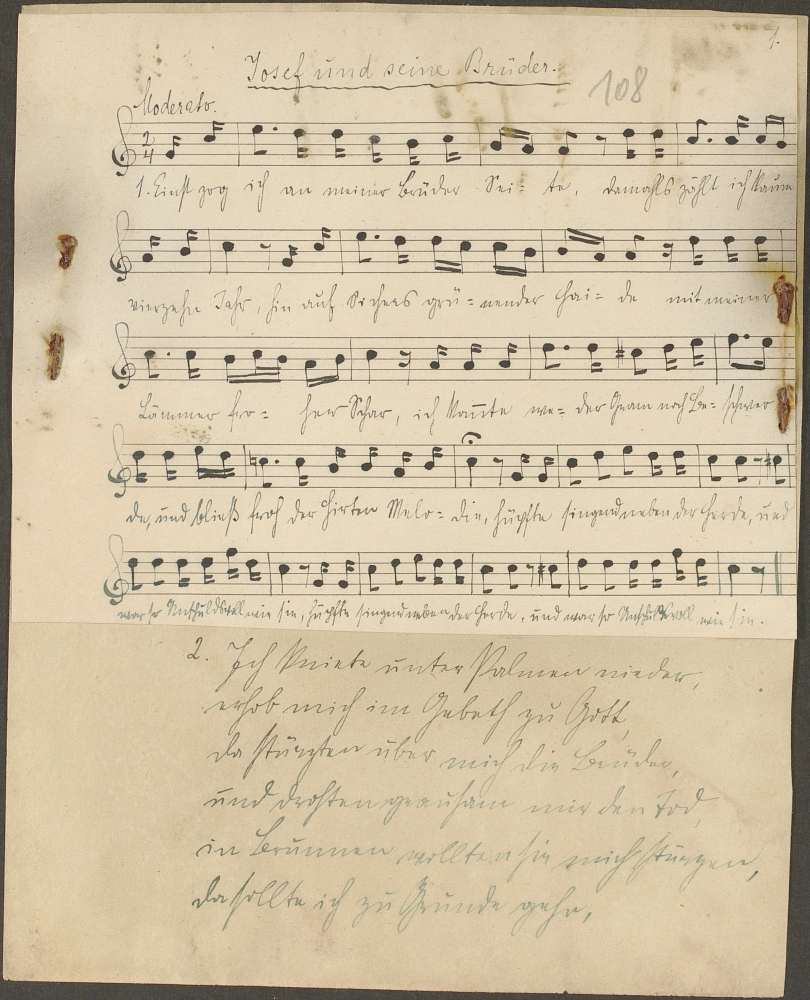 1.
Josef und seine Brüder.
108
Moderato.
2
4
1. Einst zog ich an meiner Brüder Sei= te, damahls zählt ich kaum
vierzehn Jahr, hin auf Sichems grü= nender Hai= de mit meiner
Lämmer fro= her Schar, ich kan̄te we= der Gram noch Be= schwer
de, und bließ froh der Hirten Melo= die, hüpfte singend neben der Herde, und
war so Unschuldsvoll wie sie, hüpfte singend neben der Herde, und war so Unschuldsvoll wie sie.
2. Ich kniete unter Palmen nieder,
erhob mich im Gebeth zu Gott,
da stürzten über mich die Brüder,
und drohten grausam mir den Tod,
in Brunnen wollten sie mich stürzen,
da sollte ich zu Grunde gehn,